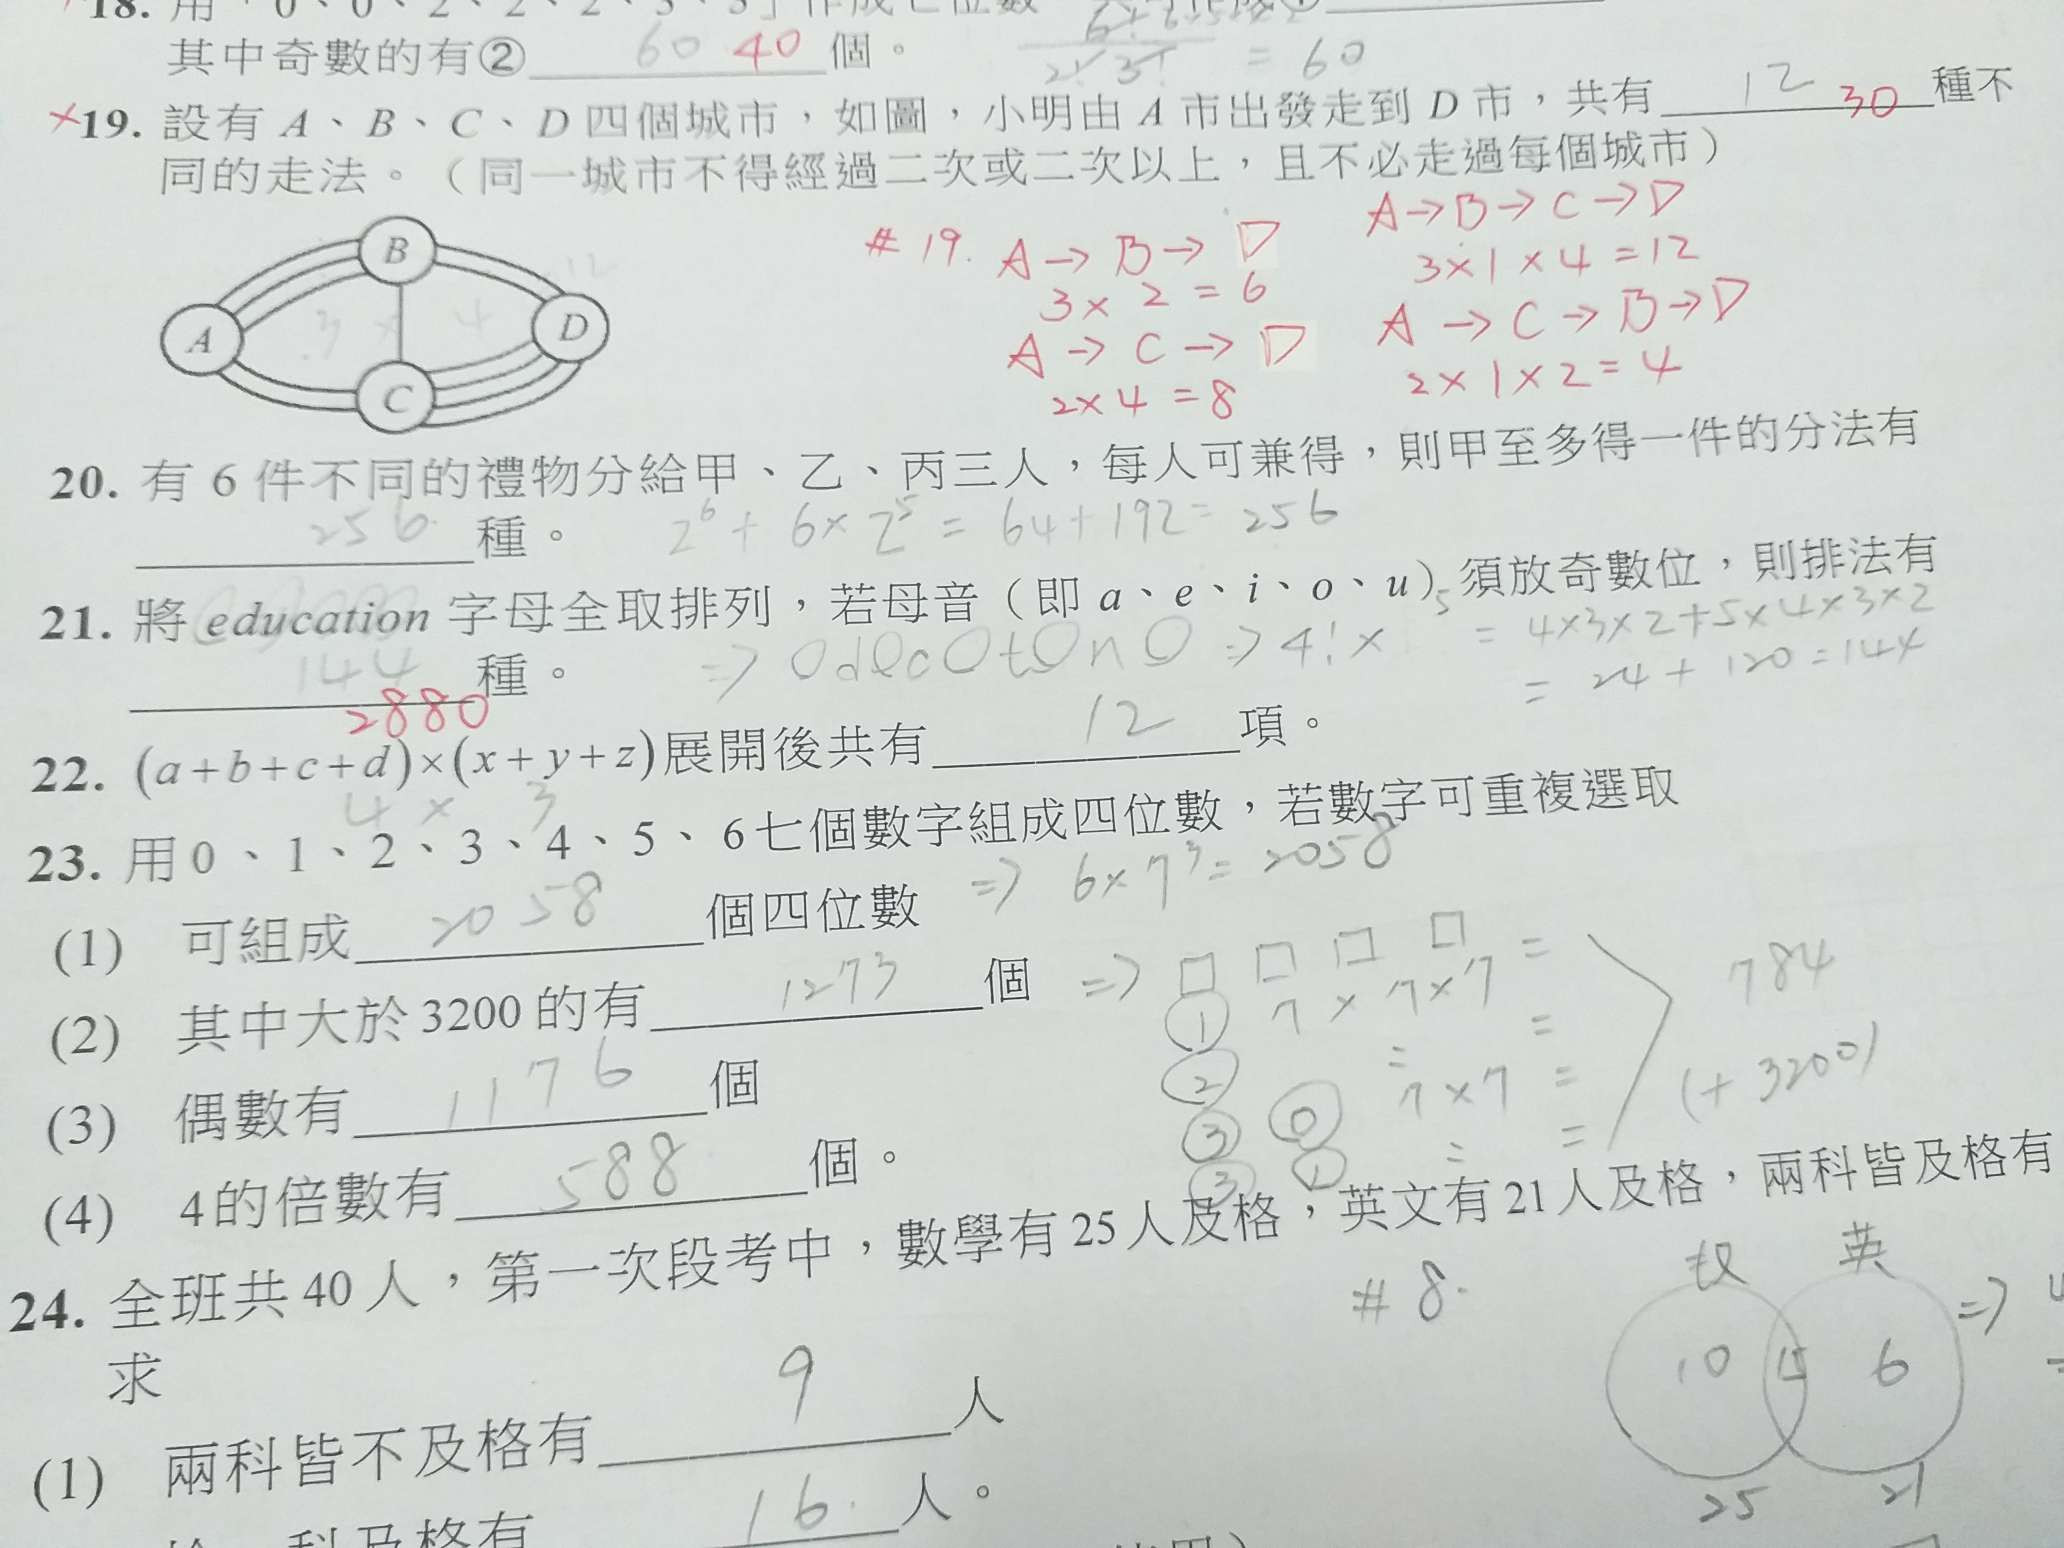 18. 用「0、0、2、2、2、3、3」作成七位數
其中奇數的有② 60 40 個。 = 60
×19. 設有 A、B、C、D 四個城市，如圖，小明由 A 市出發走到 D 市，共有 12 30 種不
同的走法。（同一城市不得經過二次或二次以上，且不必走過每個城市）
B
A
C
D
3 × 4
# 19. A → B → D
3 × 2 = 6
A → C → D
2 × 4 = 8
A → B → C → D
3 × 1 × 4 = 12
A → C → B → D
2 × 1 × 2 = 4
20. 有 6 件不同的禮物分給甲、乙、丙三人，每人可兼得，則甲至多得一件的分法有
256 種。 2^6 + 6×2^5 = 64+192 = 256
21. 將 education 字母全取排列，若母音（即 a、e、i、o、u）須放奇數位，則排法有
144 種。
2880
⇒ 4! × 5 = 4×3×2+5×4×3×2
= 24 + 120 = 144
22. (a+b+c+d)×(x+y+z)展開後共有 12 項。
4 × 3
23. 用0、1、2、3、4、5、6七個數字組成四位數，若數字可重複選取
⇒ 6×7^3 = 2058
(1) 可組成 2058 個四位數
(2) 其中大於3200的有 1273 個 ⇒ □ □ □ □
① 7 × 7 × 7 =
② =
③ ⓪ 7 × 7 =
③ ① =
784
(+ 3200)
(3) 偶數有 1176 個
(4) 4的倍數有 588 個。
24. 全班共40人，第一次段考中，數學有25人及格，英文有21人及格，兩科皆及格有
求
# 8.
英
10 15 6 ⇒
25 21
(1) 兩科皆不及格有 9 人
科及格有 16. 人。